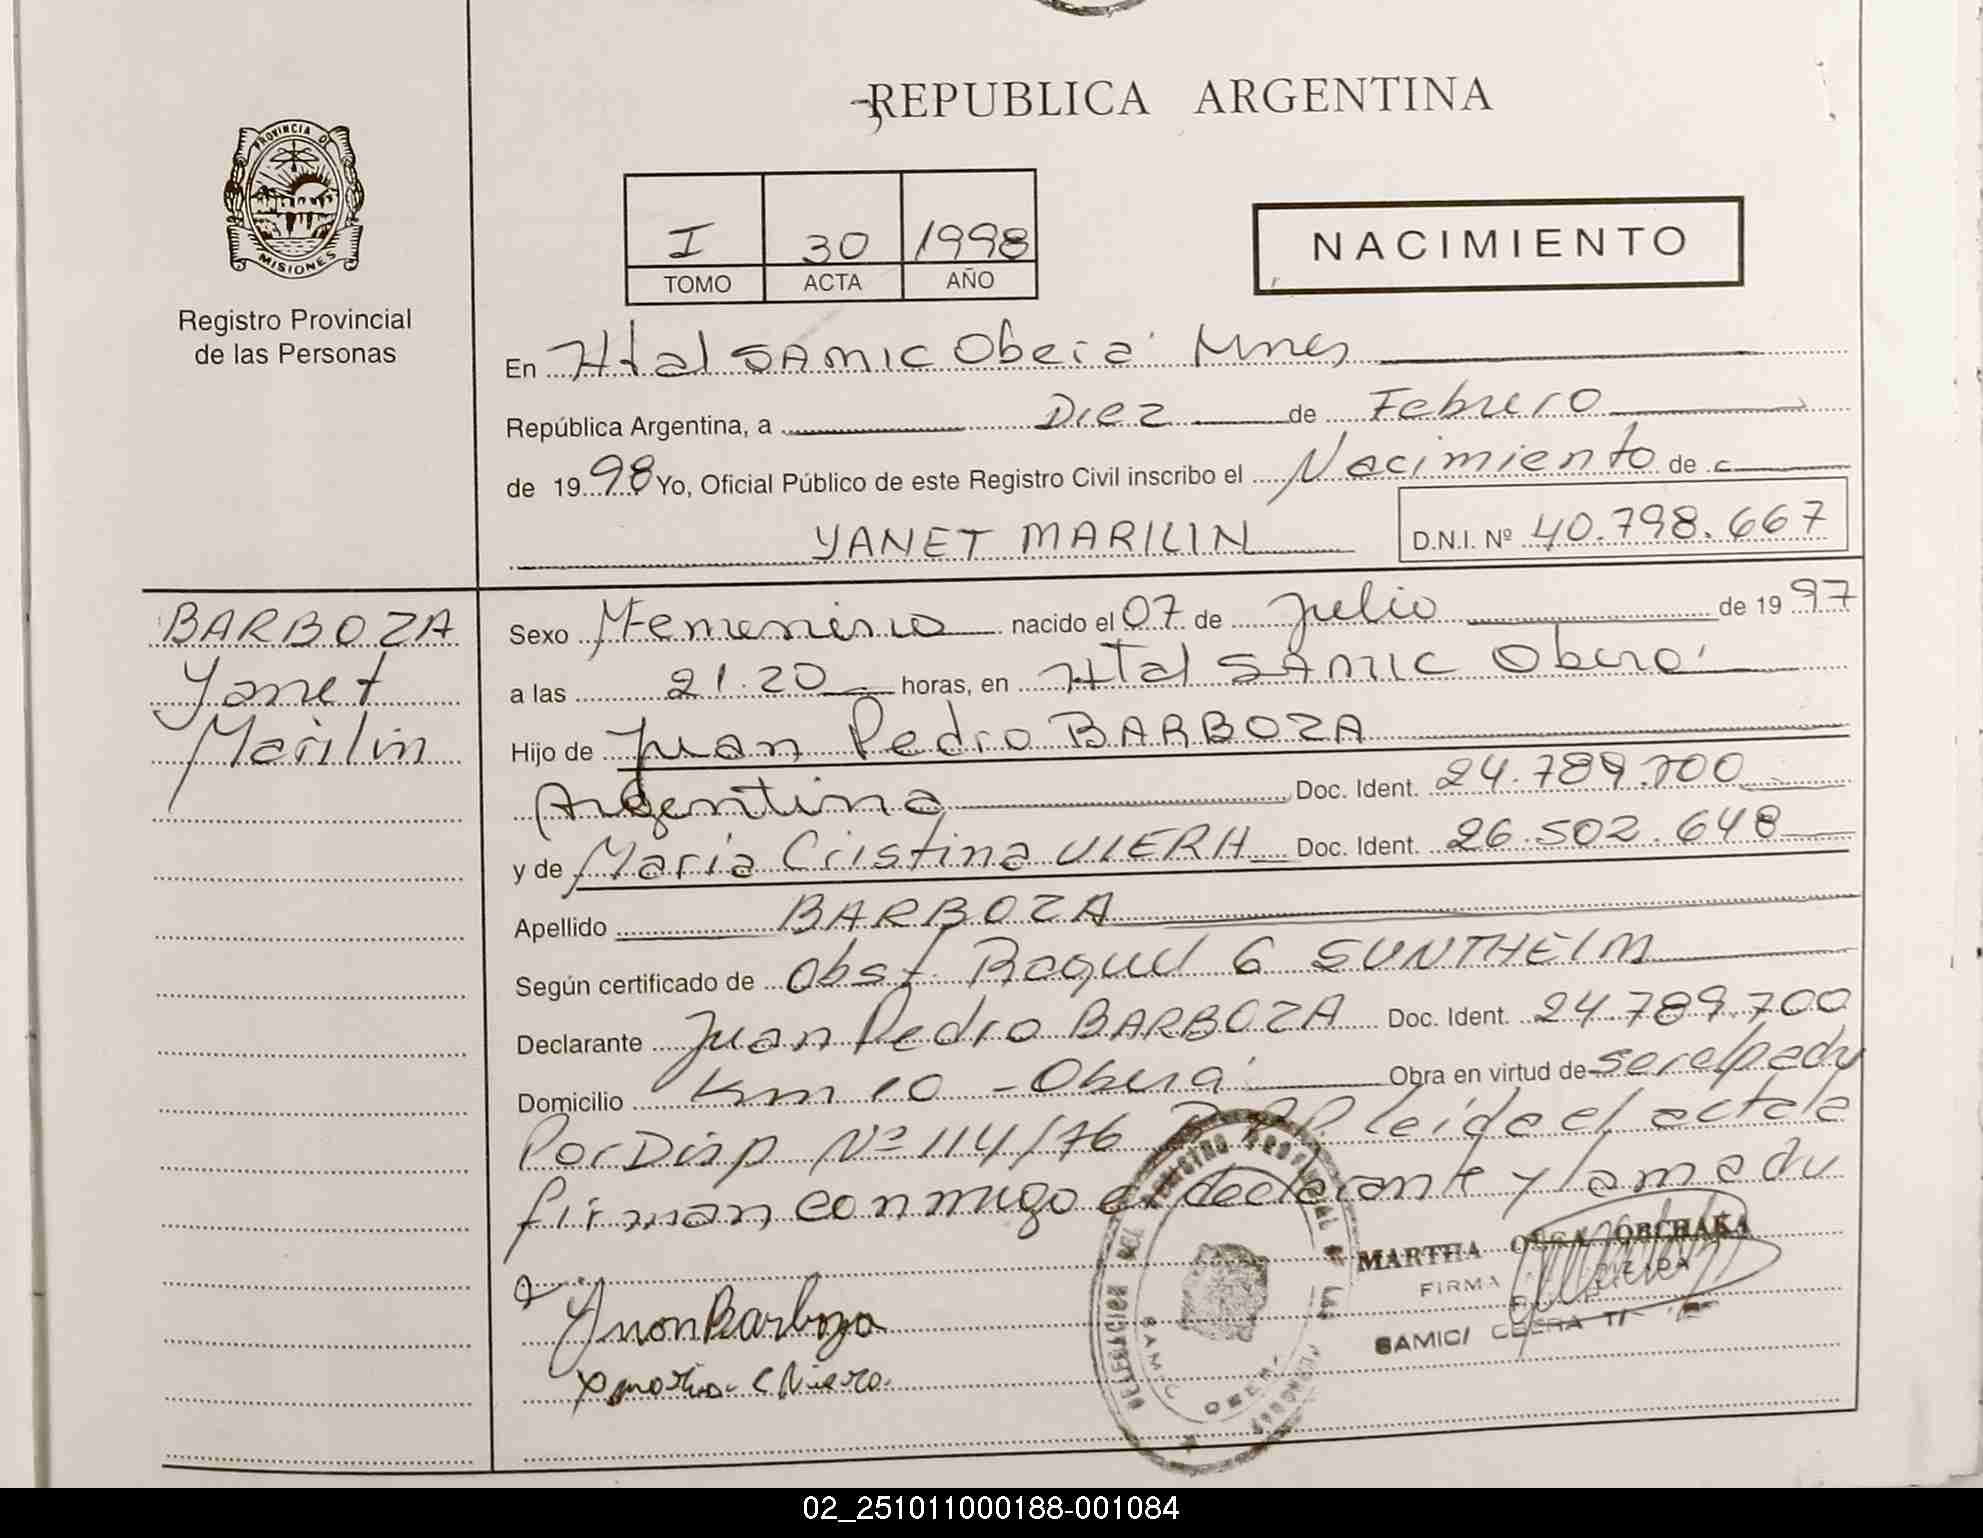 REPUBLICA ARGENTINA
PROVINCIA DE
MISIONES
Registro Provincial
de las Personas
I 30 1998
TOMO ACTA AÑO
NACIMIENTO
En Htal SAMIC Oberá Mnes
República Argentina, a Diez de Febrero
de 1998 Yo, Oficial Público de este Registro Civil inscribo el Nacimiento de
YANET MARILIN D.N.I. Nº 40.798.667
BARBOZA
Yanet
Marilin
Sexo Femenino nacido el 07 de Julio de 1997
a las 21.20 horas, en Htal SAMIC Oberá
Hijo de Juan Pedro BARBOZA
Argentina Doc. Ident. 24.789.700
y de María Cristina VIERA Doc. Ident. 26.502.648
Apellido BARBOZA
Según certificado de Obst Raquel G SUNTHEIM
Declarante Juan Pedro BARBOZA Doc. Ident. 24.789.700
Domicilio Km 10 - Oberá Obra en virtud de ser el padre
Por Disp Nº 114/76 leída el acta la
firman conmigo el declarante y la madre
Juan Barboza
MARTHA OLGA
FIRMA
SAMIC/ OBERA
DELEGACION DEL REGISTRO PROVINCIAL DE LAS PERSONAS
SAMIC OBERA
02_251011000188-001084